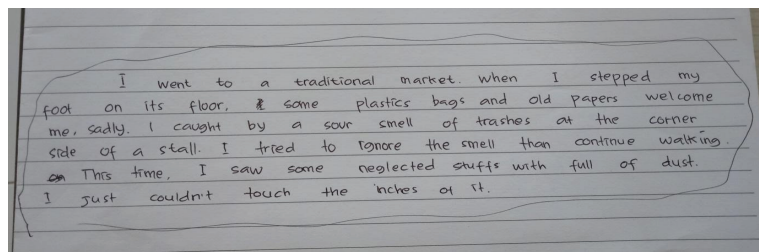 I went to a traditional market. When I stepped my
foot on its floor, some plastics bags and old papers welcome
me, sadly. I caught by a sour smell of trashes at the corner
side of a stall. I tried to ignore the smell than continue walking.
This time, I saw some neglected stuffs with full of dust.
I just couldn't touch the inches of it.